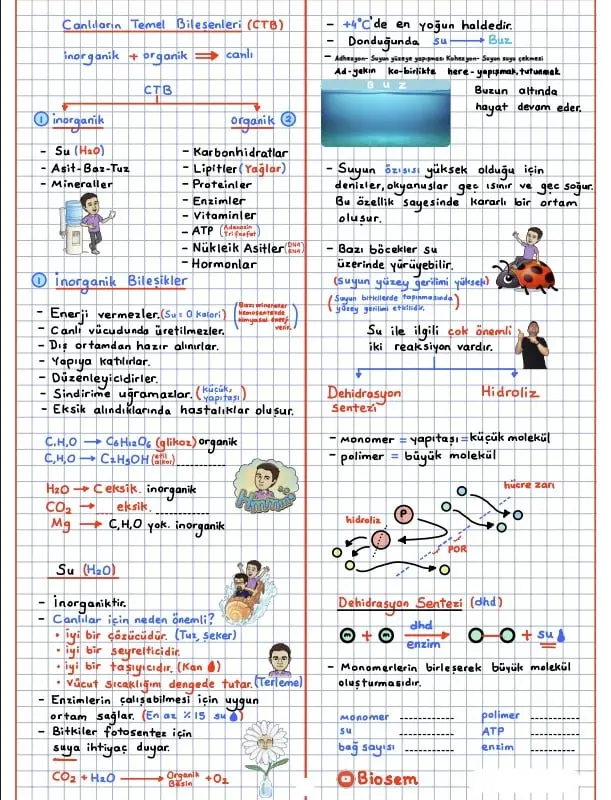 Canlıların Temel Bileşenleri (CTB)
inorganik + organik ⟹ canlı
CTB
① inorganik
organik ②
- Su (H₂O)
- Asit-Baz-Tuz
- Mineraller
- Karbonhidratlar
- Lipitler (Yağlar)
- Proteinler
- Enzimler
- Vitaminler
- ATP (Adenozin Trifosfat)
- Nükleik Asitler (DNA RNA)
- Hormonlar
① İnorganik Bileşikler
- Enerji vermezler. (Su = 0 kalori) (Bazı mineraller kemosentezde kimyasal enerji verir.)
- Canlı vücudunda üretilmezler.
- Dış ortamdan hazır alınırlar.
- Yapıya katılırlar.
- Düzenleyicidirler.
- Sindirime uğramazlar. (küçük, yapıtaşı)
- Eksik alındıklarında hastalıklar oluşur.
C,H,O → C₆H₁₂O₆ (glikoz) organik
C,H,O → C₂H₅OH (etil alkol) ----------
H₂O → C eksik. inorganik
CO₂ → ---- eksik. ----------
Mg → C,H,O yok. inorganik
Hmmm
Su (H₂O)
- İnorganiktir.
- Canlılar için neden önemli?
• iyi bir çözücüdür. (Tuz, Şeker)
• iyi bir seyrelticidir.
• iyi bir taşıyıcıdır. (Kan)
• vücut sıcaklığını dengede tutar. (Terleme)
- Enzimlerin çalışabilmesi için uygun
ortam sağlar. (En az %15 su)
- Bitkiler fotosentez için
suya ihtiyaç duyar.
CO₂ + H₂O → Organik Besin + O₂
- +4°C'de en yoğun haldedir.
- Donduğunda su → Buz
- Adhezyon- Suyun yüzeye yapışması Kohezyon- Suyun suyu çekmesi
Ad-yakın ko-birlikte here-yapışmak, tutunmak
Buz
Buzun altında
hayat devam eder.
- Suyun özısısı yüksek olduğu için
denizler, okyanuslar geç ısınır ve geç soğur.
Bu özellik sayesinde kararlı bir ortam
oluşur.
- Bazı böcekler su
üzerinde yürüyebilir.
(Suyun yüzey gerilimi yüksek)
(Suyun bitkilerde taşınmasında yüzey gerilimi etkilidir.)
Su ile ilgili çok önemli
iki reaksiyon vardır.
Dehidrasyon
sentezi
Hidroliz
- monomer = yapıtaşı = küçük molekül
- polimer = büyük molekül
hücre zarı
P
hidroliz
POR
Dehidrasyon Sentezi (dhd)
m + m dhd enzim → + su
- Monomerlerin birleşerek büyük molekül
oluşturmasıdır.
monomer ---------- polimer ----------
su ---------- ATP ----------
bağ sayısı ---------- enzim ----------
Biosem